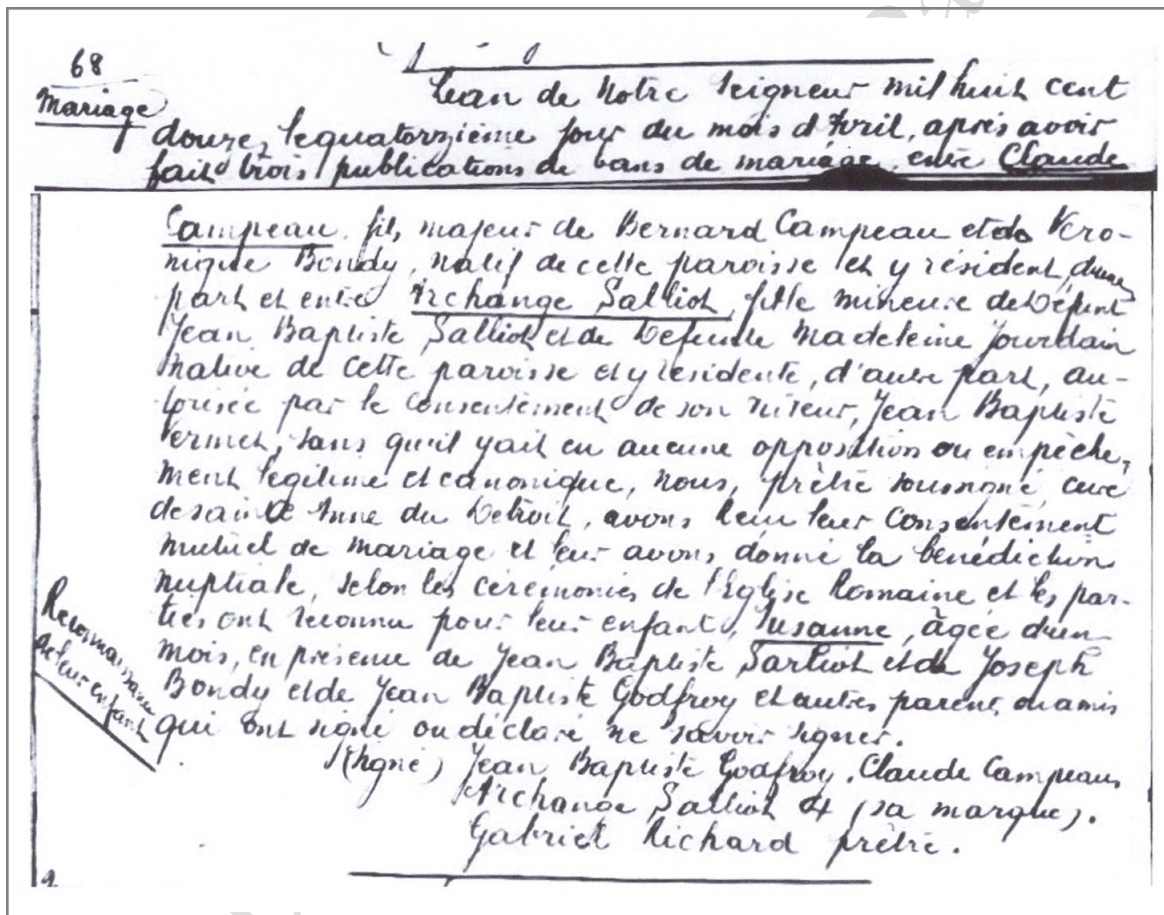 68
Mariage
L'ean de Notre Seigneur mil huit cent
douze, le quatorzième jour du mois d'Avril, après avoir
fait trois publications de bans de mariage entre Claude
Campeau, fils majeur de Bernard Campeau et de Vero-
nique Bondy, natif de cette paroisse et y résident, d'une
part et entre Archange Salliot, fille mineure de Défunt
Jean Baptiste Salliot et de Defunte Madeleine Jourdain
native de cette paroisse et y residente, d'autre part, au-
torisée par le consentement de son tuteur, Jean Baptiste
Vermet, sans qu'il y ait eu aucune opposition ou empêche-
ment legitime et canonique, nous, prêtre soussigné, curé
de sainte Anne du Detroit, avons leur consentement
mutuel de mariage et leur avons donné la bénédiction
nuptiale, selon les cérémonies de l'Eglise Romaine et les par-
ties ont reconnu pour leur enfant, Susanne, âgée d'un
mois, en présence de Jean Baptiste Sarliot et de Joseph
Bondy et de Jean Baptiste Godfroy et autres parents ou amis
qui ont signé ou déclaré ne savoir signer.
Reconnaissance
de leur enfant
(signé) Jean Baptiste Godfroy. Claude Campeau
Archange Salliot + (sa marque).
Gabriel Richard prêtre.